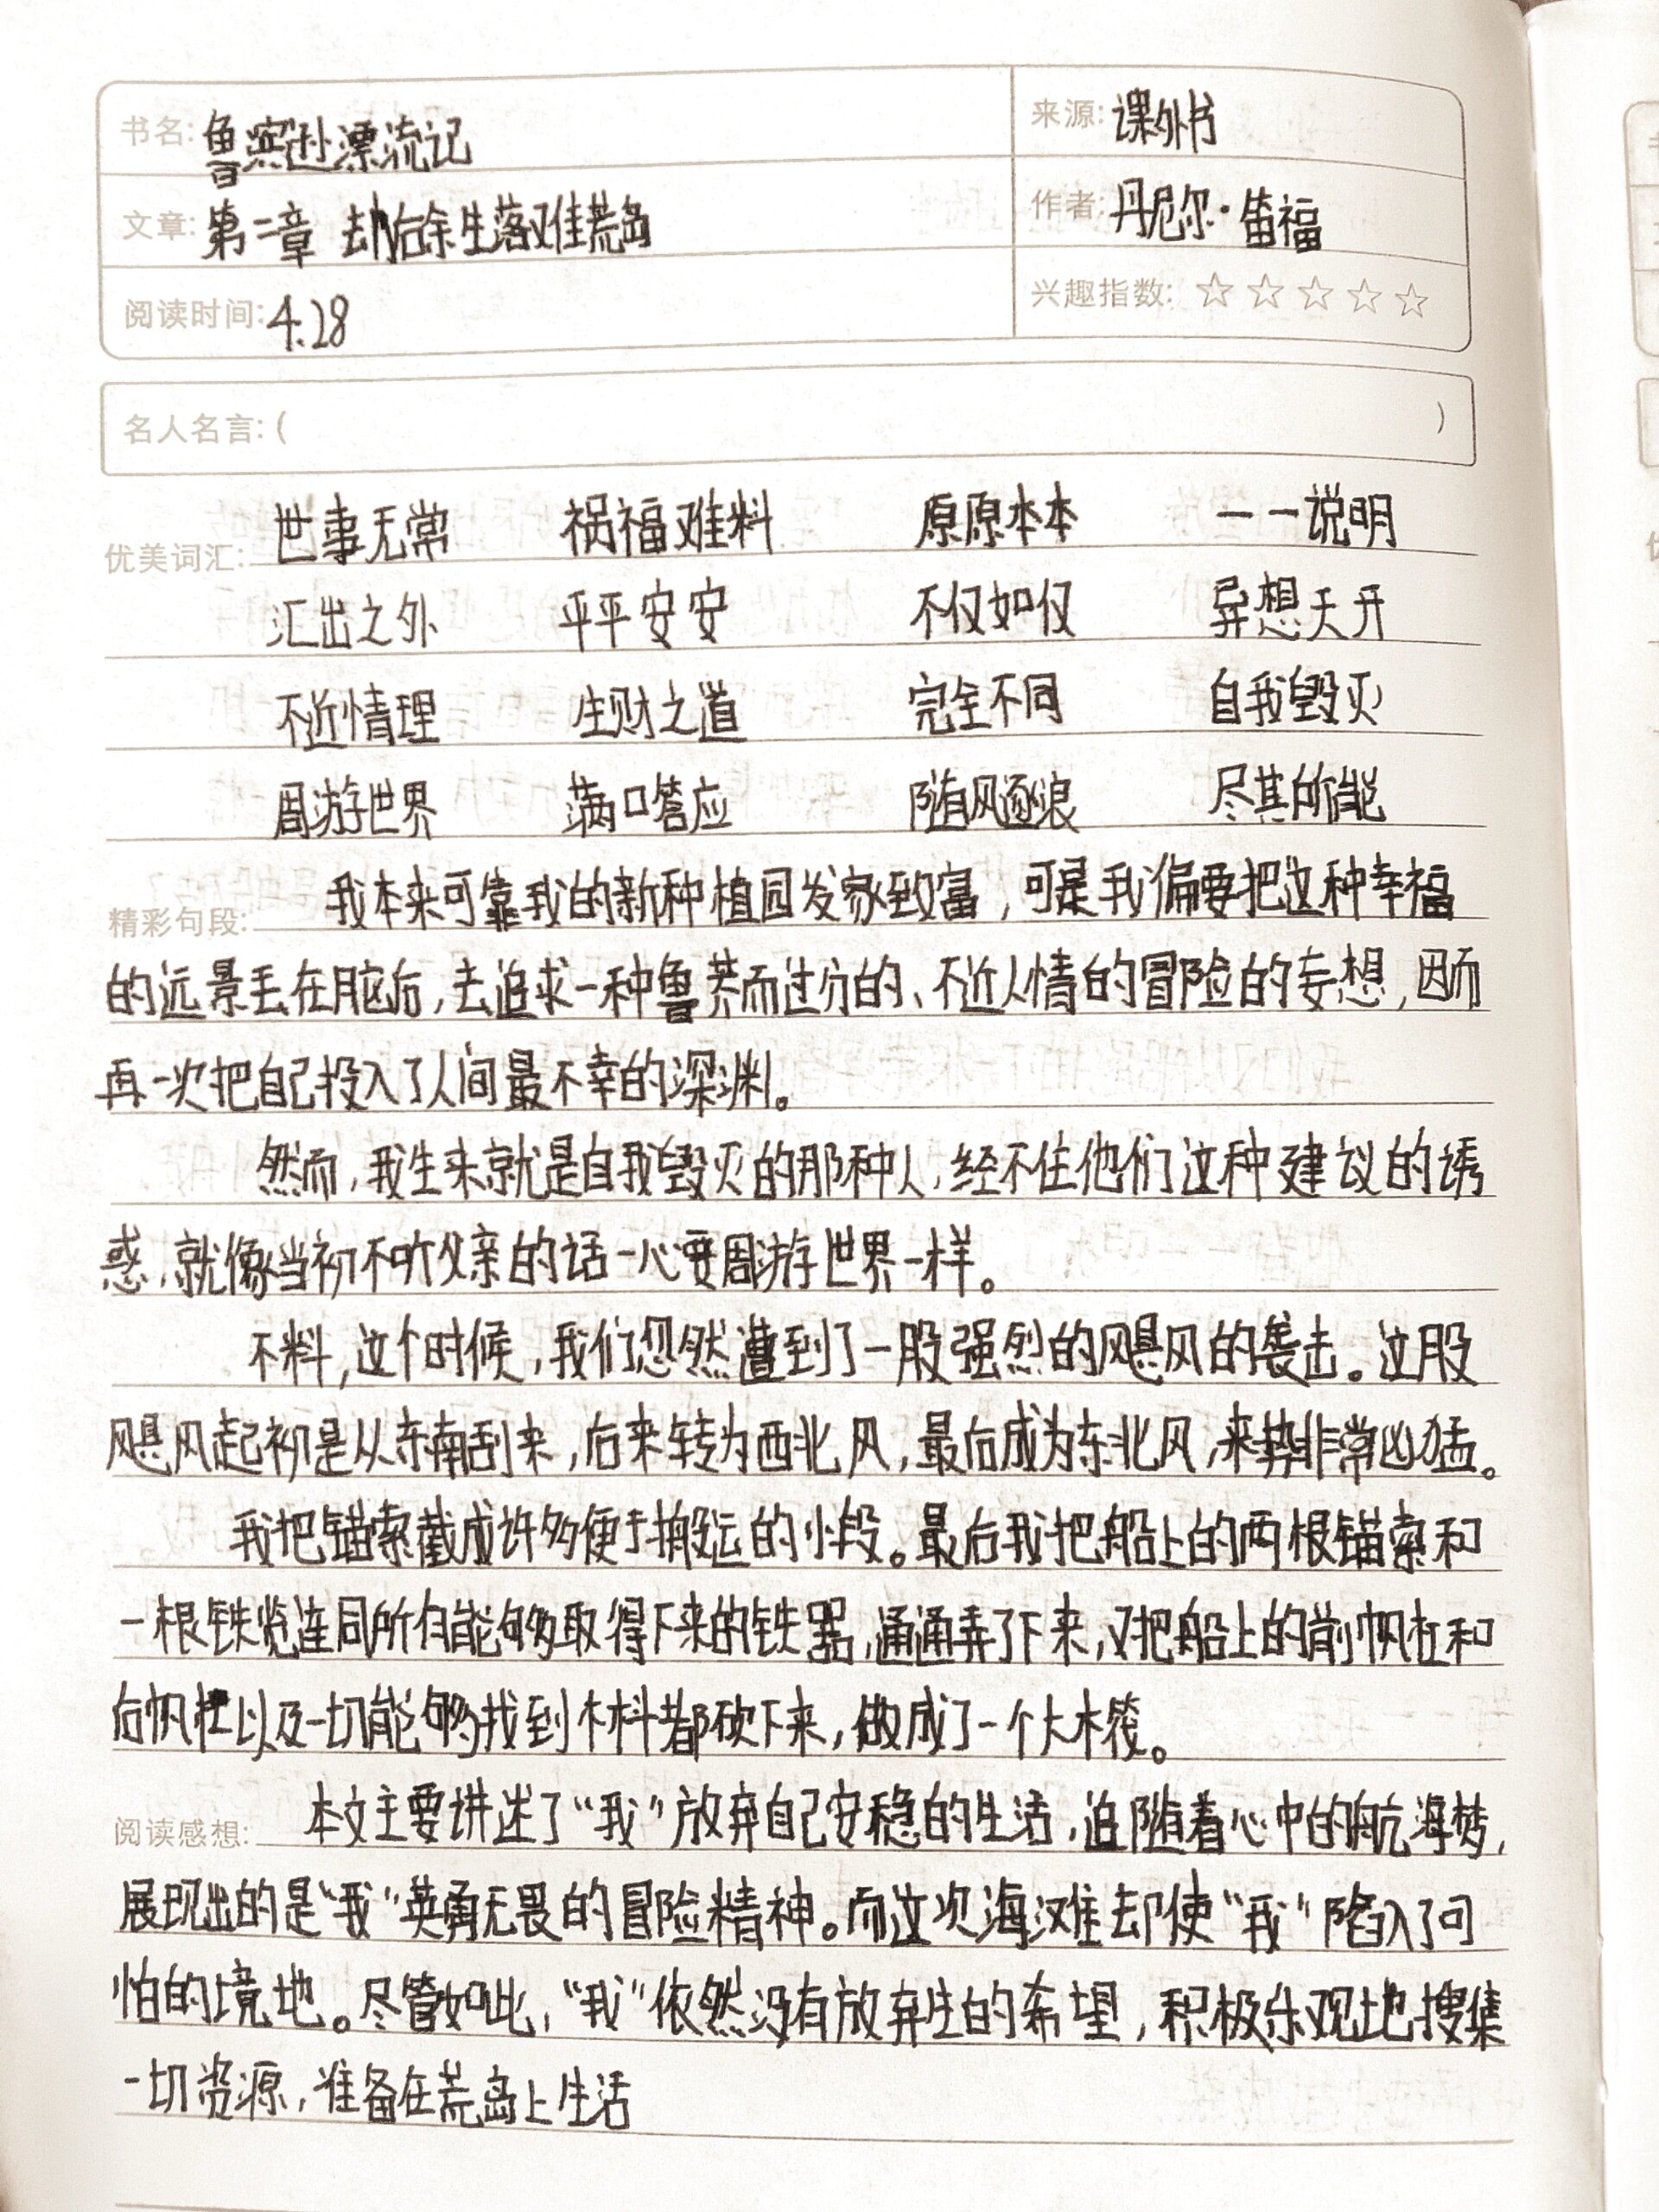 书名: 鲁滨逊漂流记
来源: 课外书
文章: 第二章 劫后余生落难荒岛
作者: 丹尼尔·笛福
阅读时间: 4.28
兴趣指数: ☆☆☆☆☆
名人名言: ( )
优美词汇: 世事无常 祸福难料 原原本本 一一说明
汇出之外 平平安安 不仅如仅 异想天开
不近情理 生财之道 完全不同 自我毁灭
周游世界 满口答应 随风逐浪 尽其所能
精彩句段: 我本来可靠我的新种植园发家致富,可是我偏要把这种幸福
的远景丢在脑后,去追求一种鲁莽而过分的、不近人情的冒险的妄想,因而
再一次把自己投入了人间最不幸的深渊。
然而,我生来就是自我毁灭的那种人,经不住他们这种建议的诱
惑,就像当初不听父亲的话一心要周游世界一样。
不料,这个时候,我们忽然遭到了一股强烈的飓风的袭击。这股
飓风起初是从东南刮来,后来转为西北风,最后成为东北风,来势非常凶猛。
我把锚索截成许多便于搬运的小段。最后我把船上的两根锚索和
一根铁览连同所有能够取得下来的铁器,通通弄了下来,又把船上的前帆杠和
后帆杠以及一切能够找到木料都砍下来,做成了一个大木筏。
阅读感想: 本文主要讲述了“我”放弃自己安稳的生活,追随着心中的航海梦,
展现出的是“我”英勇无畏的冒险精神。而这次海滩却使“我”陷入了可
怕的境地。尽管如此,“我”依然没有放弃生的希望,积极乐观地搜集
一切资源,准备在荒岛上生活